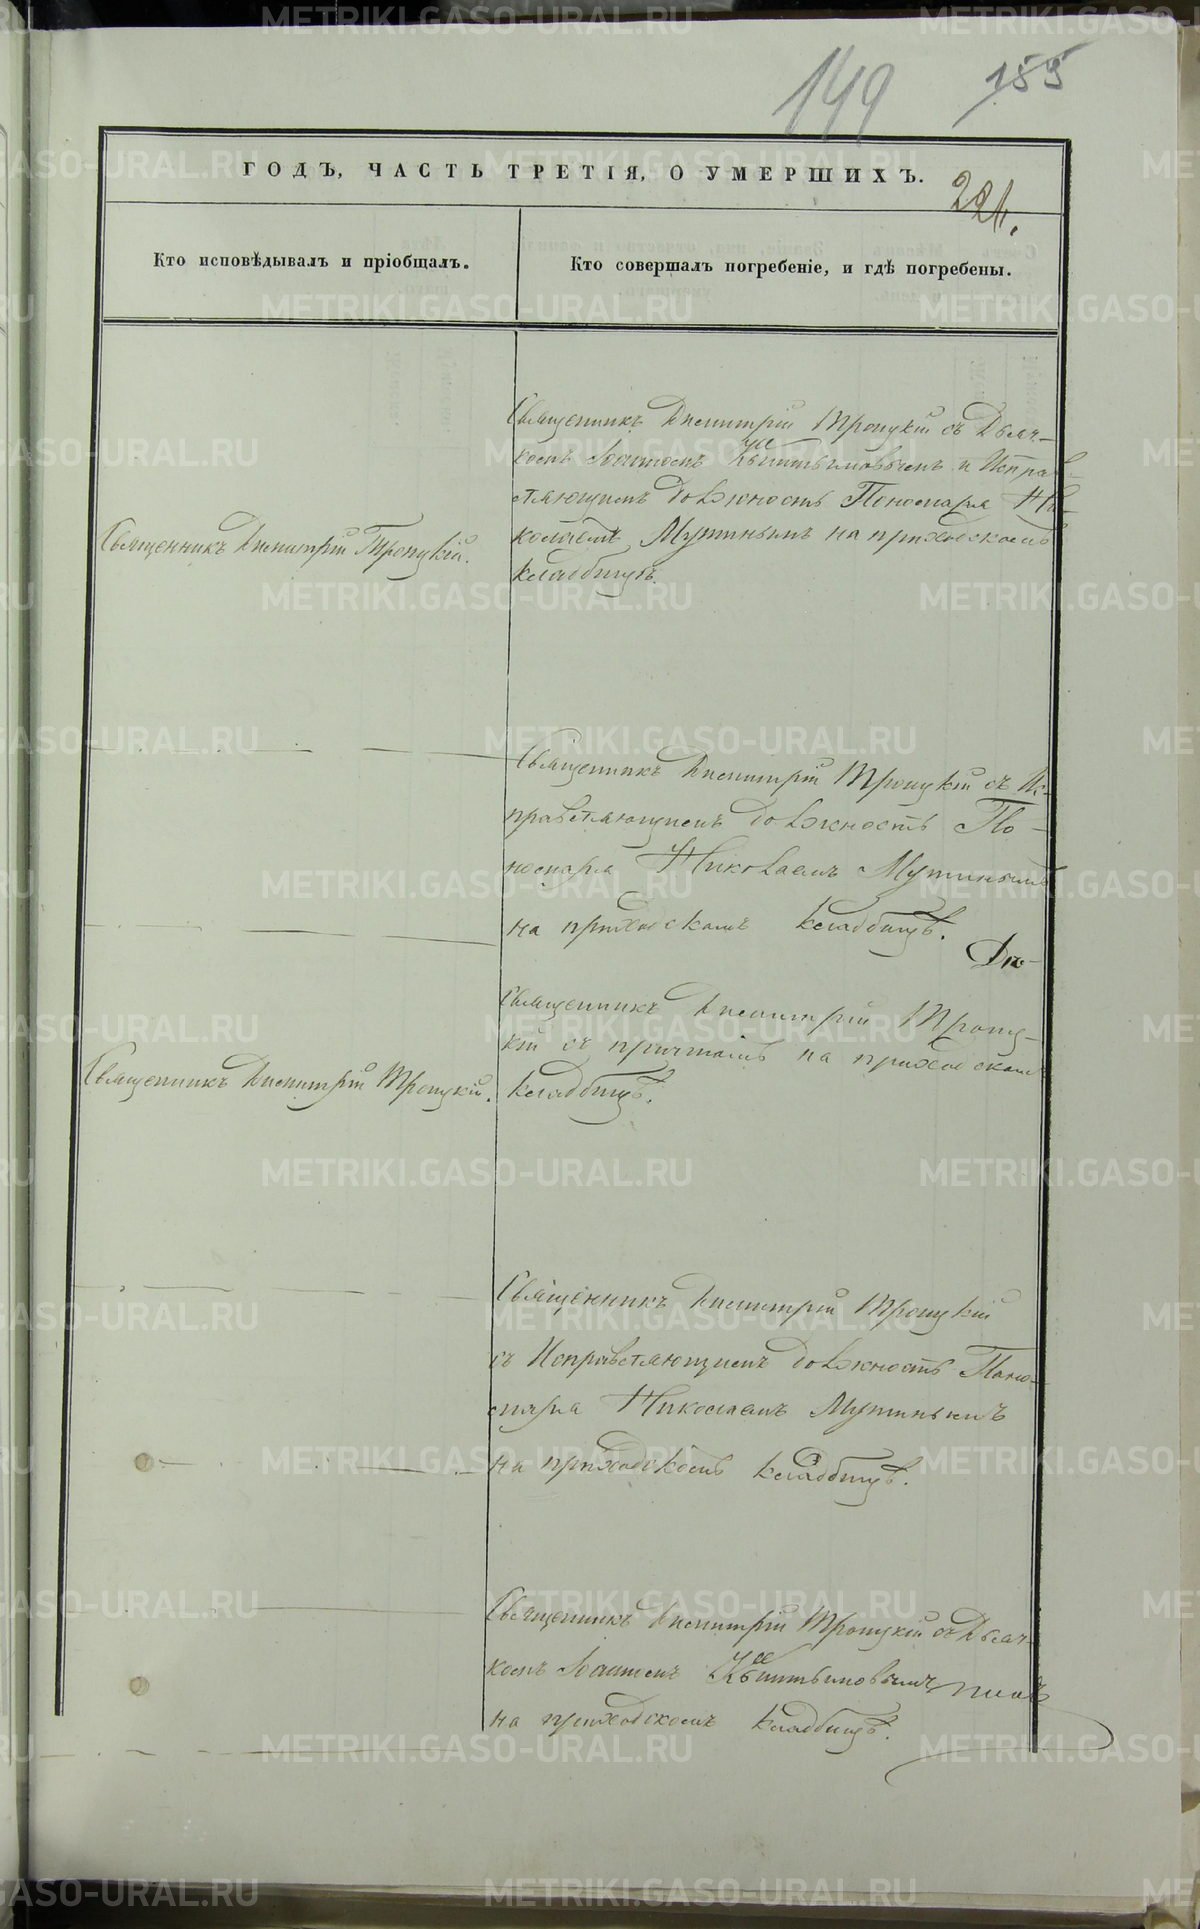 149 155
ГОДЪ, ЧАСТЬ ТРЕТІЯ, О УМЕРШИХЪ.
221.
Кто исповѣдывалъ и пріобщалъ.
Кто совершалъ погребеніе, и гдѣ погребены.
Священникъ Димитрій Троицкій съ Дьяч-
комъ и Исправ-
ляющимъ должность Пономаря Ни-
колаемъ Мутинымъ на приходскомъ
кладбищѣ.
Священникъ Димитрій Троицкій.
Священникъ Димитрій Троицкій съ Ис-
правляющимъ должность По-
номаря Николаемъ Мутинымъ
на приходскомъ кладбищѣ.
Священникъ Димитрій Троиц-
кій съ причтомъ на приходскомъ
кладбищѣ.
Священникъ Димитрій Троицкій.
Священникъ Димитрій Троицкій
съ Исправляющимъ должность Поно-
маря Николаемъ Мутинымъ
на приходскомъ кладбищѣ.
Священникъ Димитрій Троицкій съ Дьяч-
комъ
на приходскомъ кладбищѣ.
METRIKI.GASO-URAL.RU